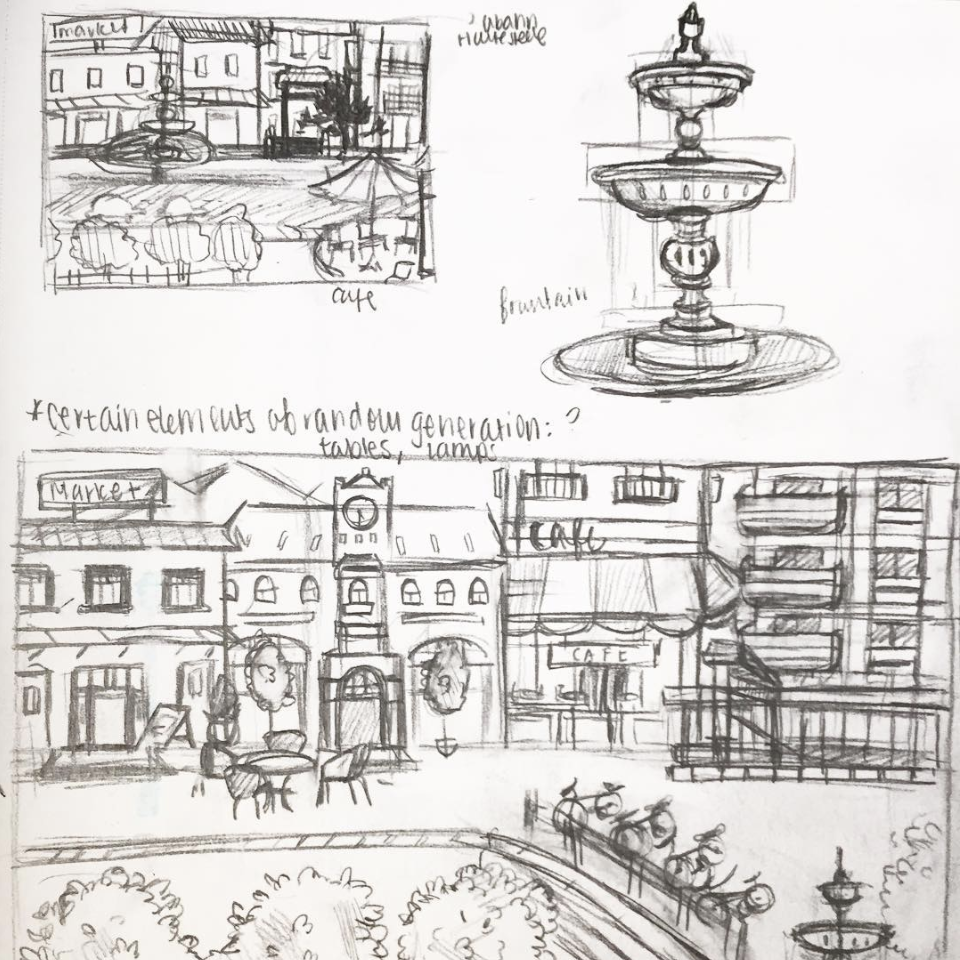 market
ubahn
Haltestelle
cafe
fountain
*certain elements of random generation: ?
tables, lamps
Market
cafe
CAFE